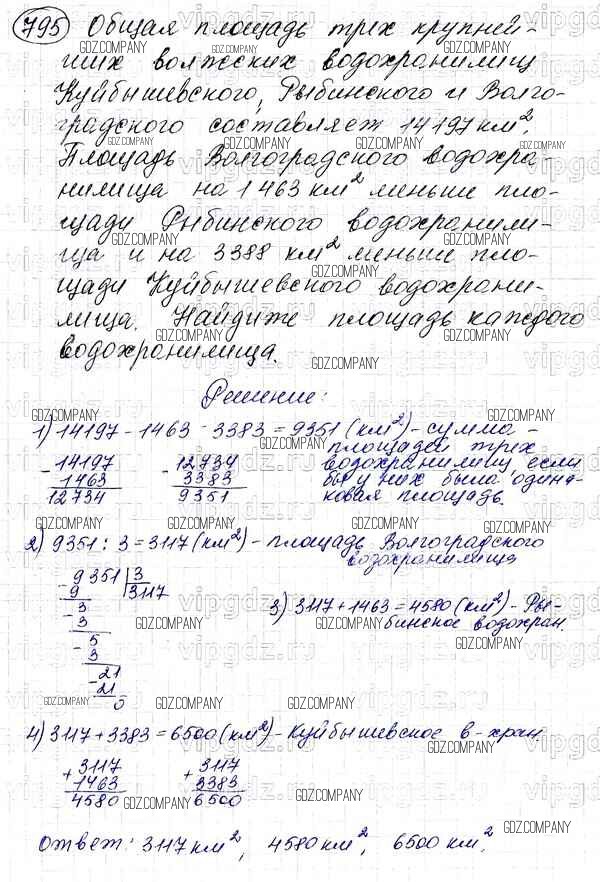 795 Общая площадь трех крупней-
ших волжских водохранилищ
Куйбышевского, Рыбинского и Волго-
градского составляет 14197 км².
Площадь Волгоградского водохра-
нилища на 1463 км² меньше пло-
щади Рыбинского водохранили-
ща и на 3388 км² меньше пло-
щади Куйбышевского водохрани-
лища. Найдите площадь каждого
водохранилища.
Решение:
1) 14197 - 1463 - 3383 = 9351 (км²) - сумма
площадей трех
водохранилищ, если
бы у них была одина-
ковая площадь.
- 14197
1463
12734
- 12734
3383
9351
2) 9351 : 3 = 3117 (км²) - площадь Волгоградского
водохранилища
- 9351 | 3
9 3117
3
- 3
5
- 3
21
- 21
0
3) 3117 + 1463 = 4580 (км²) - Ры-
бинское водохран.
4) 3117 + 3383 = 6500 (км²) - Куйбышевское в-хран
+ 3117
1463
4580
+ 3117
3383
6500
Ответ: 3117 км², 4580 км², 6500 км².
GDZ.COMPANY
vipgdz.ru